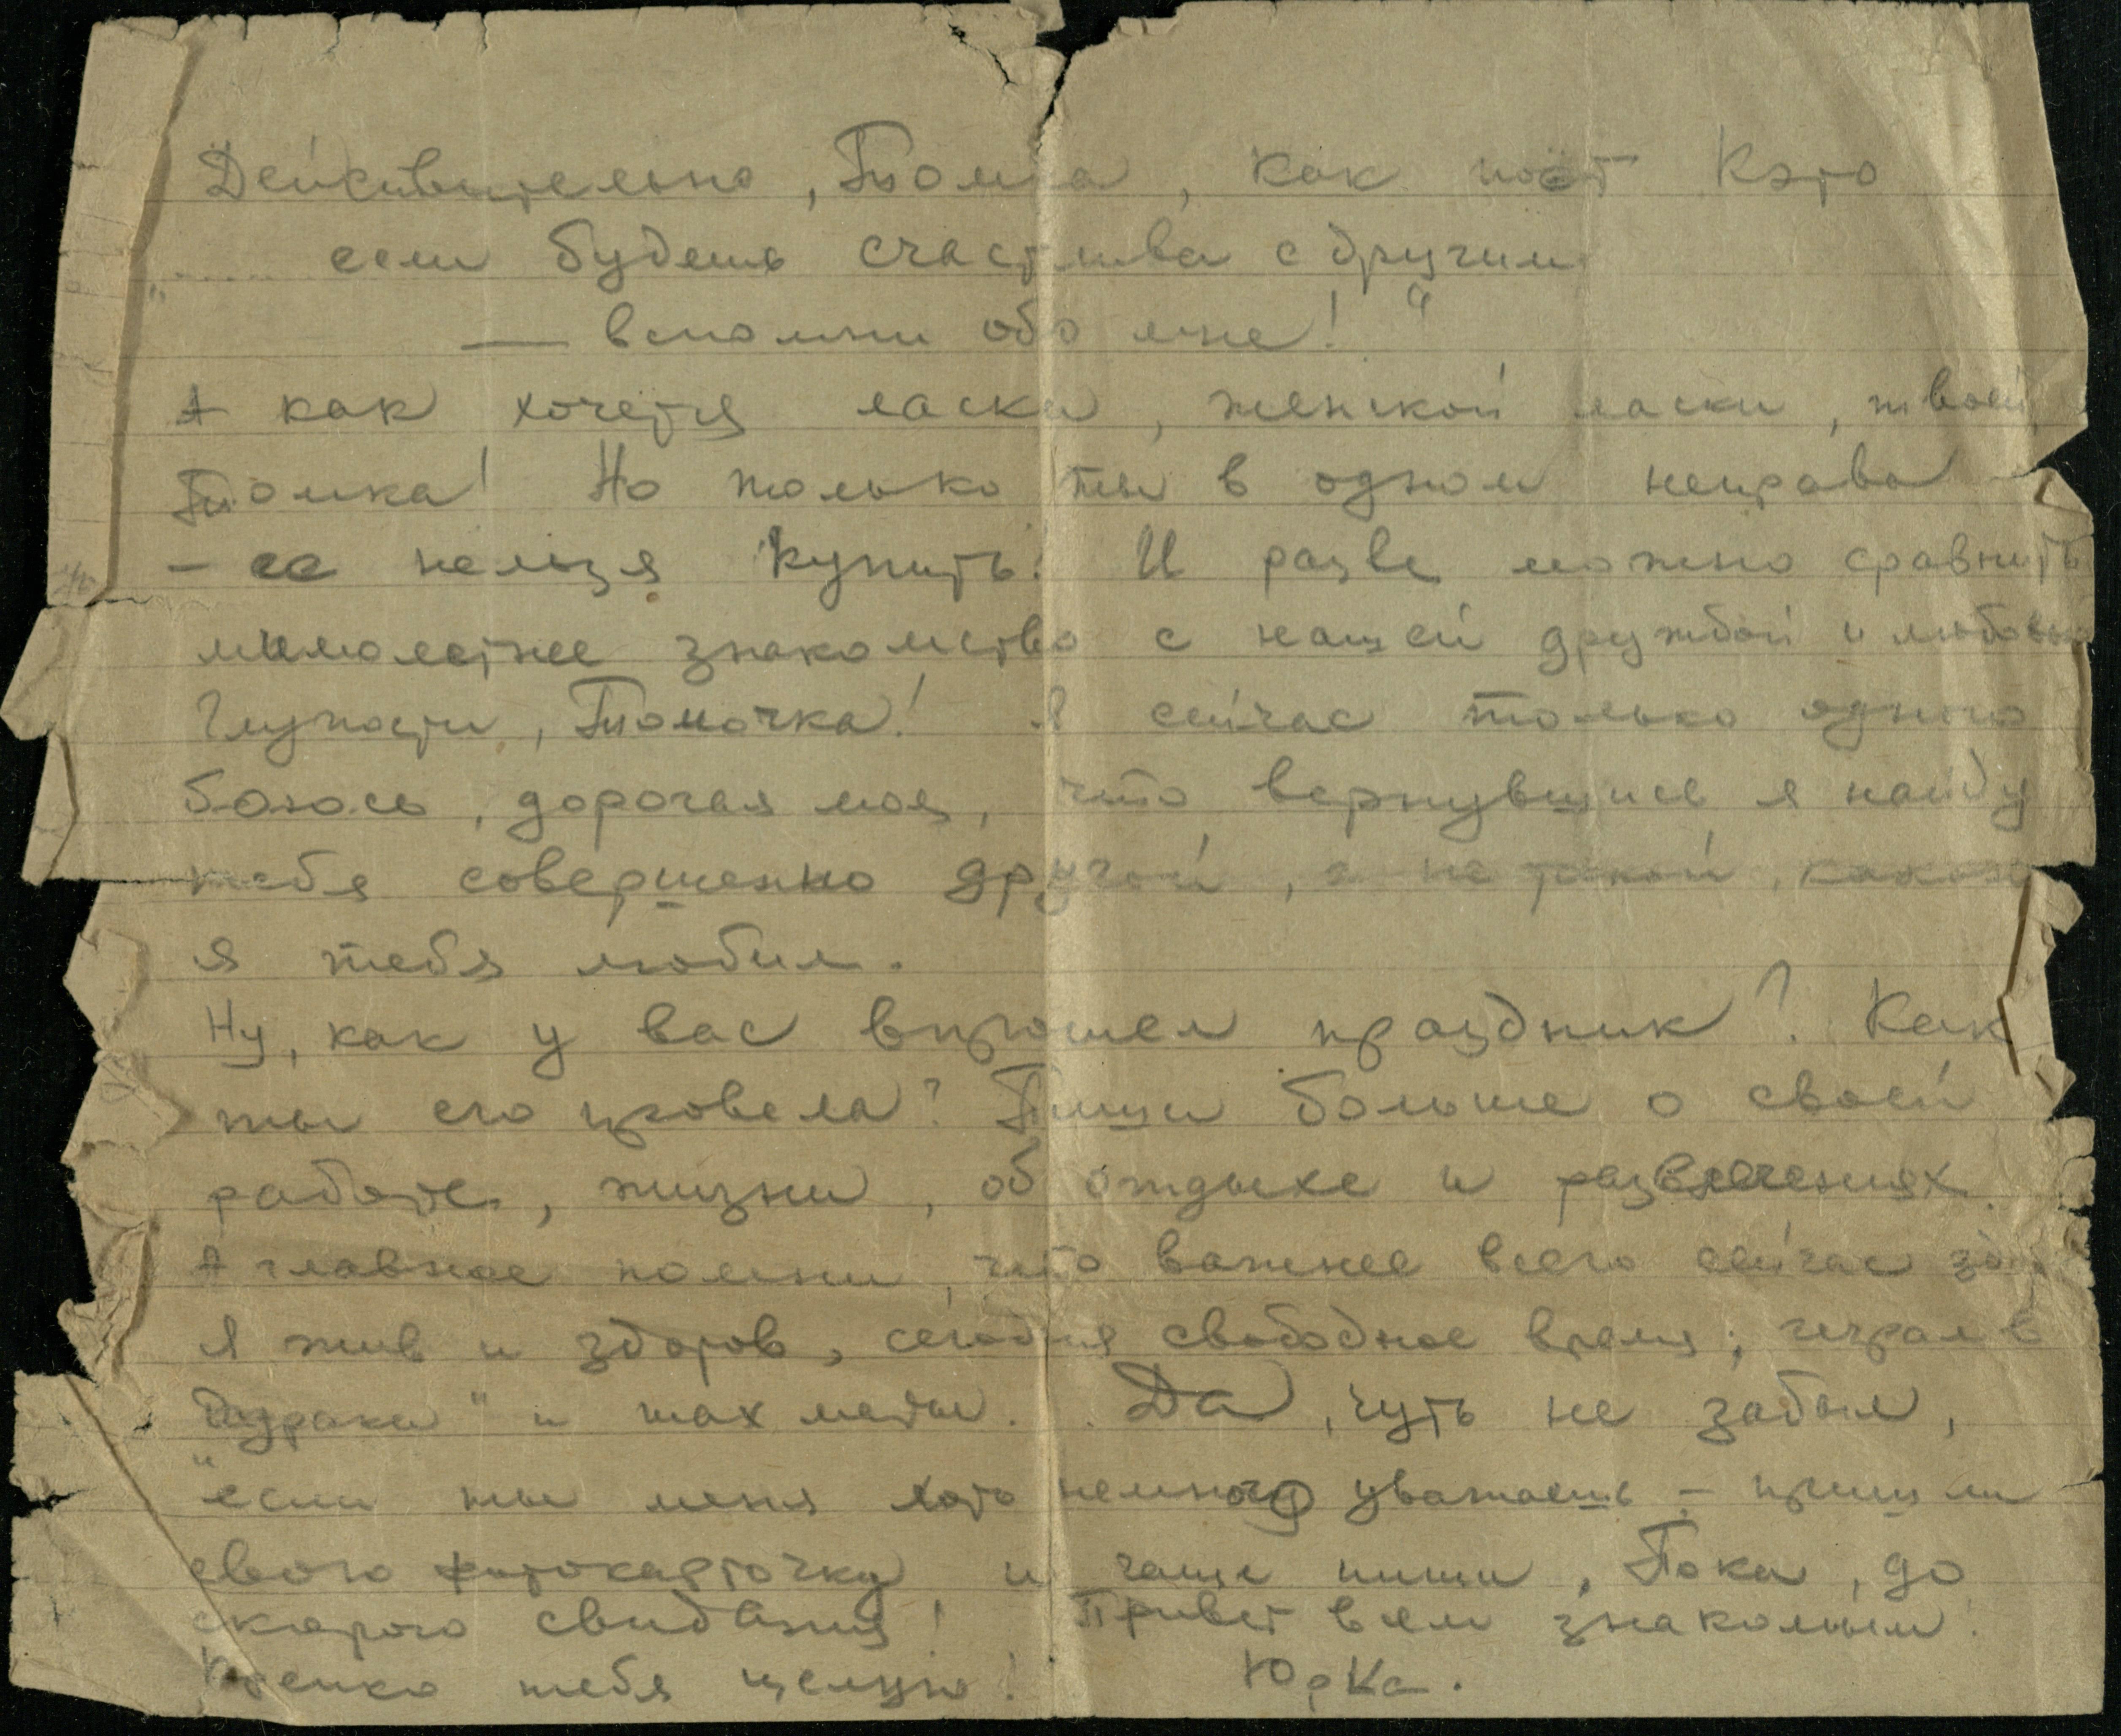 Действительно, Томка, как поёт Кэто
..... если будешь счастлива с другим
— вспомни обо мне!"
А как хочется ласки, женской ласки, твоей,
Томка! Но только ты в одном неправа
- ее нельзя купить! И разве можно сравнить
мимолетнее знакомство с нашей дружбой и любовью
Глупости, Томочка! Я сейчас только одного
боюсь, дорогая моя, что вернувшись я найду
тебя совершенно другой, а не такой, какой
я тебя любил.
Ну, как у вас прошел праздник? Как
ты его провела? Пиши больше о своей
работе, жизни, об отдыхе и развлечениях.
А главное помни, что важнее всего сейчас
Я жив и здоров, сегодня свободное время; играл в
"Дураки" и шахматы. Да, чуть не забыл,
если ты меня хоть немного уважаешь - пришли
свою фотокарточку и чаще пиши. Пока, до
скорого свидания! Привет всем знакомым!
Крепко тебя целую! Юрка.